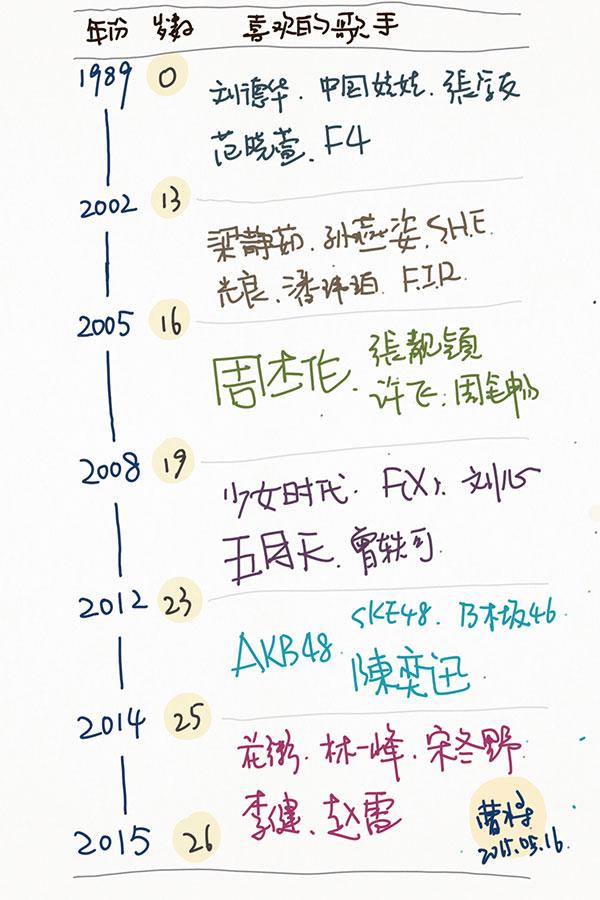 年份 岁数 喜欢的歌手
1989 0
刘德华. 中国娃娃. 張学友
范晓萱. F4
2002 13
梁静茹. 孙燕姿. S.H.E.
光良. 潘玮珀. F.I.R.
2005 16
周杰伦. 張靓颖
许飞. 周笔畅
2008 19
少女时代. F(X). 刘心
五月天. 曾轶可.
2012 23
AKB48. SKE48. 乃木坂46.
陳奕迅
2014 25
花粥. 林一峰. 宋冬野.
李健. 赵雷
2015 26
2015.05.16.